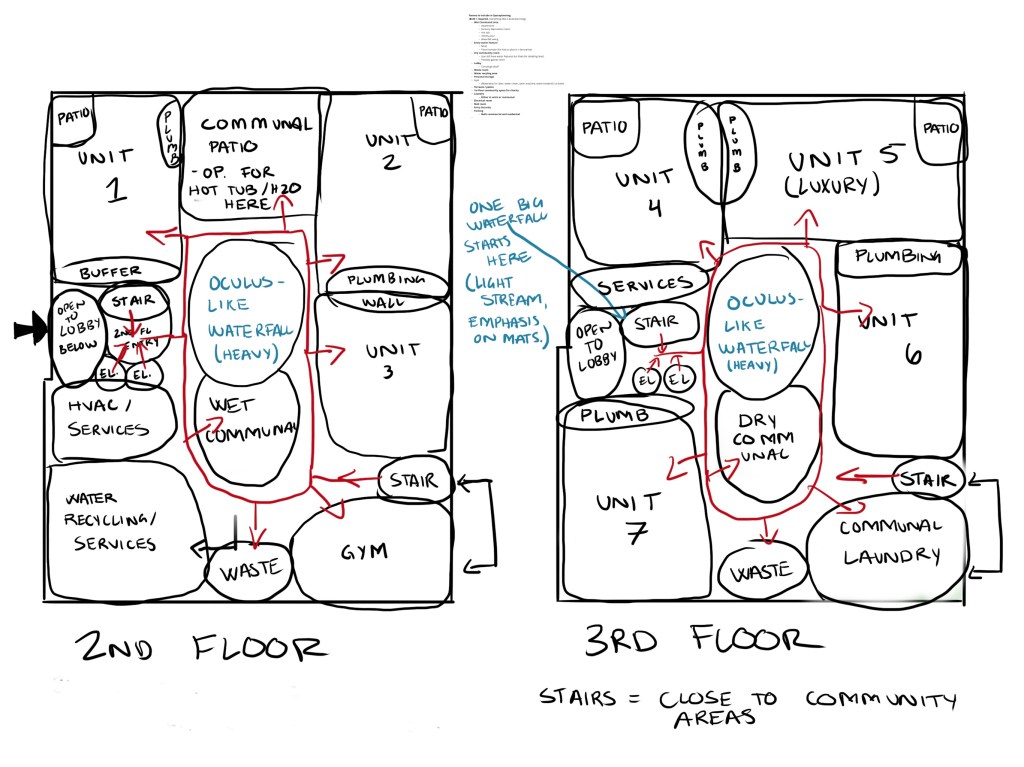 PATIO
PLUMB
UNIT
1
COMMUNAL
PATIO
- OP. FOR
HOT TUB/H2O
HERE
PATIO
UNIT
2
BUFFER
OPEN
TO
LOBBY
BELOW
STAIR
2ND FL
ENTRY
EL.
EL.
OCULUS-
LIKE
WATERFALL
(HEAVY)
PLUMBING
WALL
UNIT
3
HVAC/
SERVICES
WET
COMMUNAL
STAIR
WATER
RECYCLING/
SERVICES
WASTE
GYM
2ND FLOOR
ONE BIG
WATERFALL
STARTS
HERE
(LIGHT
STREAM,
EMPHASIS
ON MATS.)
PATIO
PLUMB
PLUMB
UNIT
4
UNIT 5
(LUXURY)
PATIO
SERVICES
PLUMBING
OPEN
TO
LOBBY
STAIR
EL
EL
OCULUS-
LIKE
WATERFALL
(HEAVY)
UNIT
6
PLUMB
DRY
COMM
UNAL
STAIR
UNIT
7
WASTE
COMMUNAL
LAUNDRY
3RD FLOOR
STAIRS = CLOSE TO COMMUNITY
AREAS